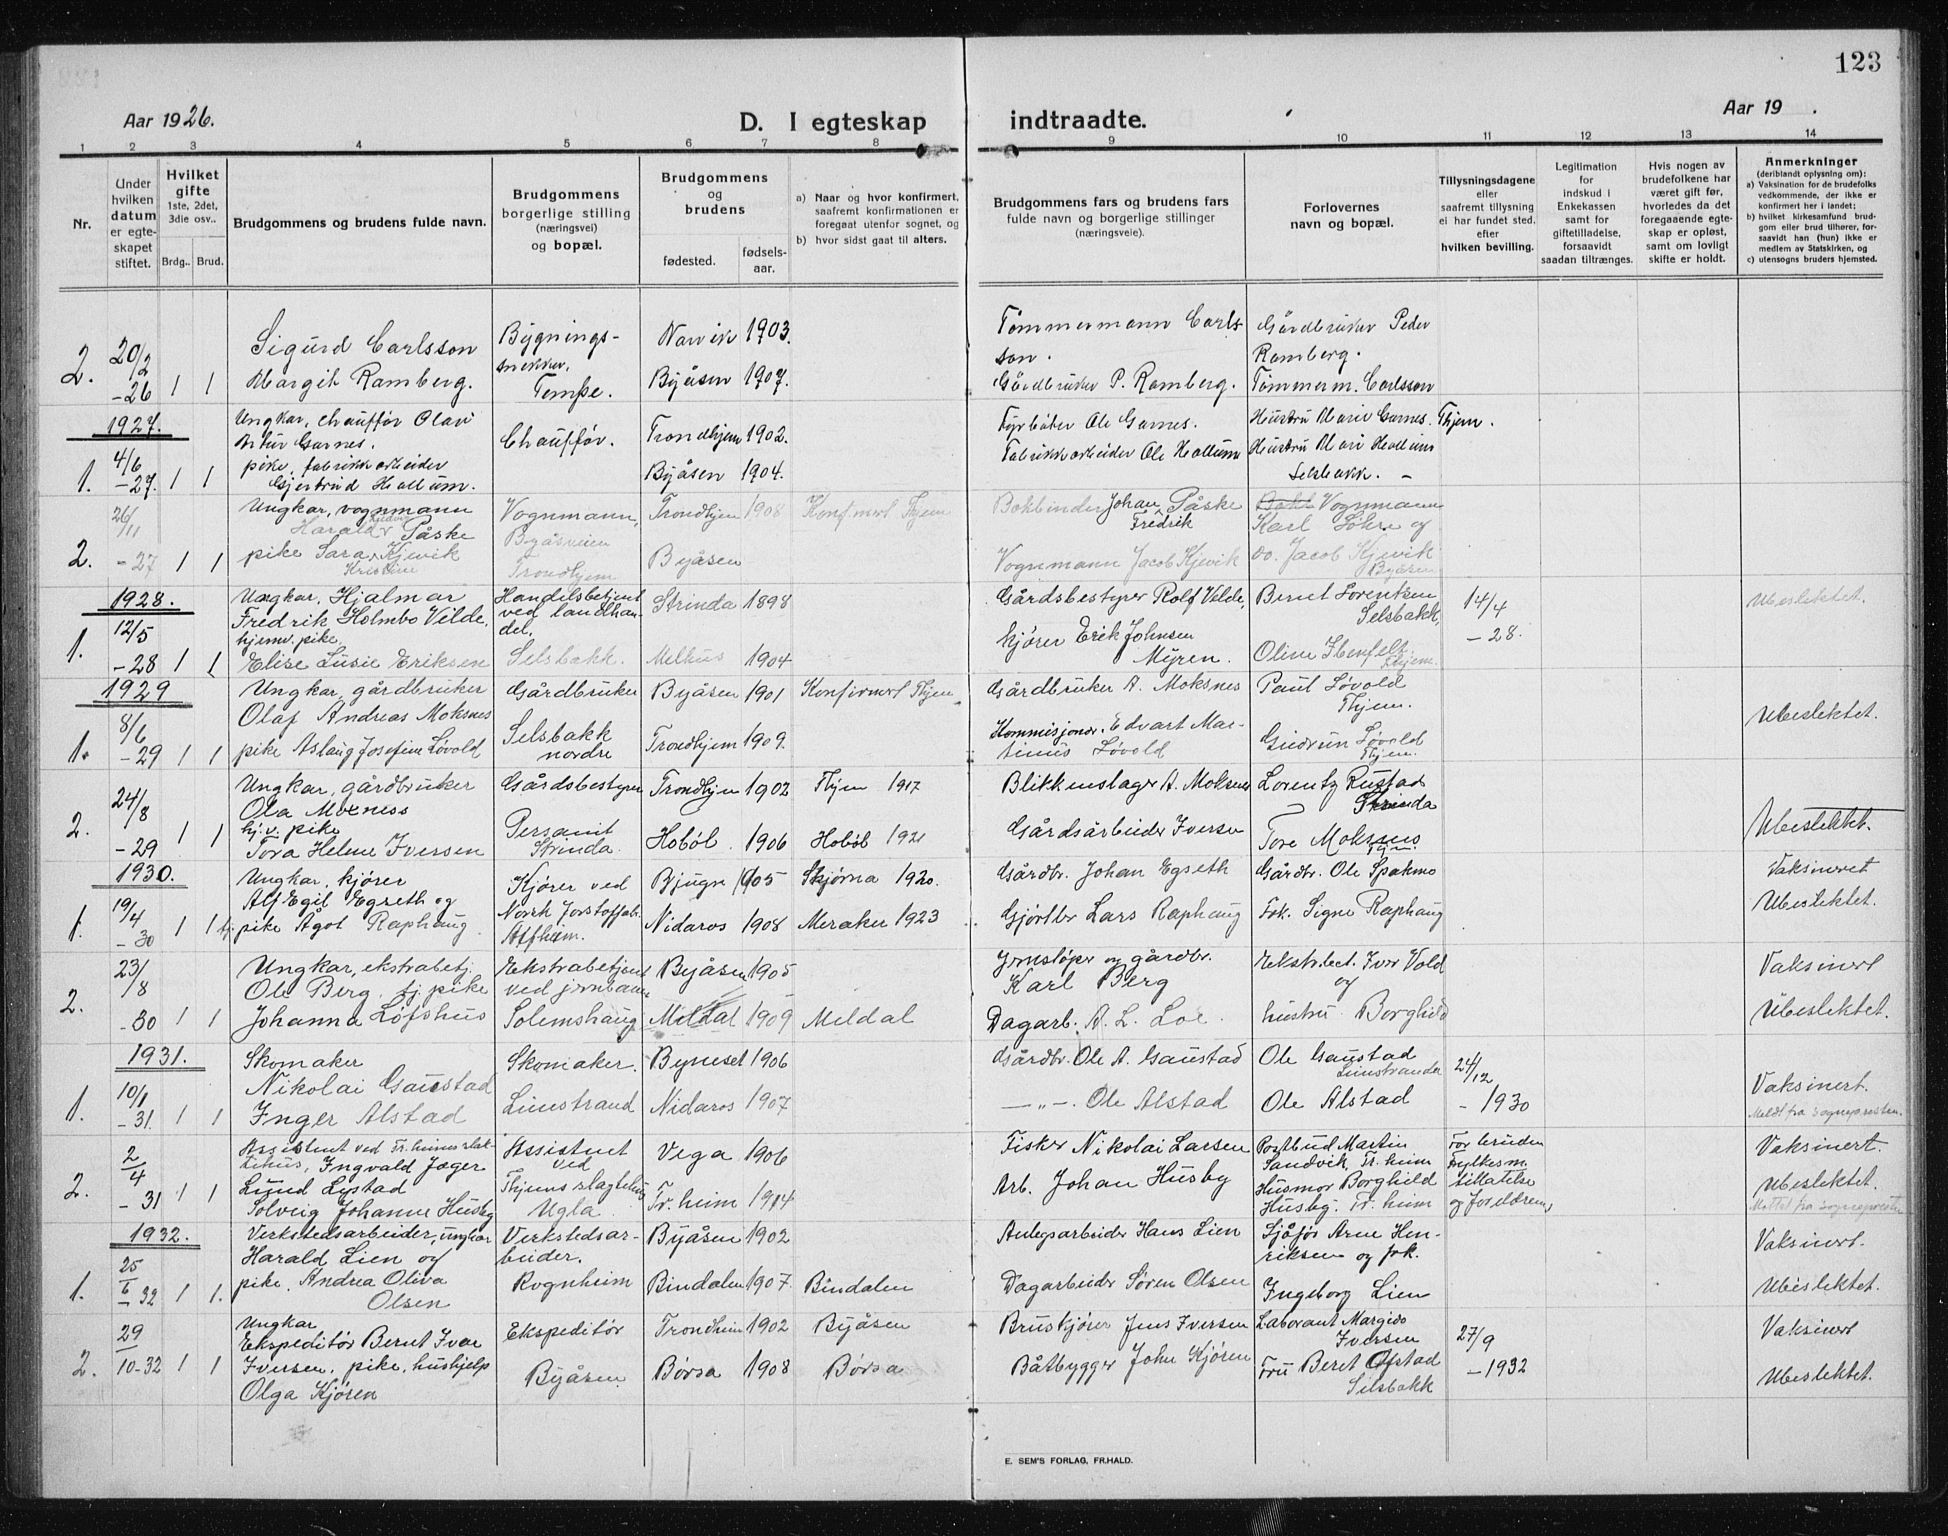 123
Aar 1926.
D. I egteskap indtraadte.
Aar 19 .
1 2 3 4 5 6 7 8 9 10 11 12 13 14
Nr.
Under hvilken datum er egteskapet stiftet.
Hvilket gifte 1ste, 2det, 3die osv..
Brdg.. Brud.
Brudgommens og brudens fulde navn.
Brudgommens borgerlige stilling (næringsvei) og bopæl.
Brudgommens og brudens
fødested. fødselsaar.
a) Naar og hvor konfirmert, saafremt konfirmationen er foregaat utenfor sognet, og
b) hvor sidst gaat til alters.
Brudgommens fars og brudens fars fulde navn og borgerlige stillinger (næringsveie).
Forlovernes navn og bopæl.
Tillysningsdagene eller saafremt tillysning ei har fundet sted. efter hvilken bevilling.
Legitimation for indskud i Enkekassen samt for giftetilladelse, forsaavidt saadan tiltrænges.
Hvis nogen av brudefolkene har været gift før, hvorledes da det foregaaende egteskap er opløst, samt om lovligt skifte er holdt.
Anmerkninger (deriblandt oplysning om):
a) Vaksination for de brudefolks vedkommende, der ikke er konfirmert her i landet;
b) hvilket kirkesamfund brudgom eller brud tilhører, forsaavidt han (hun) ikke er medlem av Statskirken, og
c) utensogns bruders hjemsted.
2. 20/2 -26 1 1
Sigurd Carlsson
Margit Ramberg.
Bygnings-
snekker.
Tempe.
Narvik 1903.
Byåsen 1907.
Tømmermann Carls-
son.
Gårdbruker P. Ramberg.
Gårdbruker Peder
Ramberg.
Tømmerm. Carlsson
1927.
1. 4/6 -27. 1 1
Ungkar, chauffør Olav
Artur Garnes.
pike, fabrikkarbeider
Gjertrud Hollum.
Chauffør.
Trondhjem 1902.
Byåsen 1904.
Fyrbøter Ole Garnes.
Fabrikkarbeider Ole Hollum
Hustru Marie Garnes. Thjem.
Hustru Mari Hollum
Selsbakk. -
2. 26/11 -27 1 1
Ungkar, vognmann
Harald Påske
pike Sara Kjevik
Kristine
Vognmann,
Byåsveien
Trondhjem
Trondhjem 1908 Konfirmert Thjem
Byåsen
Bokbinder Johan Påske
Fredrik
Vognmann Jacob Kjevik
Vognmann
Karl Løhre og
do. Jacob Kjevik
Byåsen
1928.
1. 12/5 -28 1 1
Ungkar, Hjalmar
Fredrik Holmbo Velde,
hjemv. pike
Elise Lusie Eriksen
Handelsbetjent
ved landhan-
del.
Selsbakk.
Strinda 1898
Melhus 1904
Gårdsbestyrer Rolf Velde,
kjører Erik Johnsen
Myren.
Bernt Lorentzen
Selsbakk,
Oline Ibenfelt
Thjem.
14/4
-28.
Ubeslektet.
1929
1. 8/6 -29 1 1
Ungkar, gårdbruker
Olaf Andreas Moksnes
pike Aslaug Josefine Løvold
Gårdbruker
Selsbakk
nordre
Byåsen 1901 Konfirmert Thjem.
Trondhjem 1909.
Gårdbruker A. Moksnes
Kommisjonær Edvart Mar-
tinus Løvold
Paul Løvold
Thjem.
Gudrun Løvold
Thjem.
Ubeslektet.
2. 24/8 -29 1 1
Ungkar, gårdbruker
Ola Moxness
hj.v. pike
Tora Helene Iversen
Gårdsbestyrer
Strinda.
Trondhjem 1902 Thjem 1917
Hobøl. 1906 Hobøl 1921
Blikkenslager A. Moksnes
Gårdsarbeider Iversen
Lorentz Rustad
Strinda
Tore Moksnes
Ubeslektet.
1930.
1. 19/4 -30 1 1
Ungkar, kjører
Alf Egil Egseth og
pike Ågot Raphaug
Kjører ved
Norsk
Bjugn 1905 Skjørna 1920.
Nidaros 1908 Meraker 1923
Gårdbr. Johan Egseth
Gjørtler Lars Raphaug
Gårdbr. Ole Spakmo
Frk. Signe Raphaug
Vaksineret
Ubeslektet.
2. 23/8 -30 1 1
Ungkar, ekstrabetj.
Ole Berg. fj. pike
Johanna Løfshus
Ekstrabetjent
ved jernbanen
Solemshaug
Byåsen 1905
Meldal 1909 Meldal
og gårdbr.
Karl Berg
Dagarb. A. L. Loe.
Ekstrabet. Iver Vold
og
hustru Borghild
Vaksinert
Ubeslektet.
1931.
1. 10/1 -31. 1 1
Skomaker
Nikolai Gaustad
Inger Alstad
Skomaker.
Leinstrand
Byneset 1906
Nidaros 1907
Gårdbr. Ole A. Gaustad
-„-. Ole Alstad
Ole Gaustad
Leinstranden
Ole Alstad
24/12
- 1930
Vaksinert.
Meldt fra sognepresten.
2. 2/4 -31 1 1
Assistent ved Tr.heims slak-
tehus, Ingvald Jæger
Lund Lystad
Solveig Johanne Husby
Assistent
ved
Thjems slagtehus
Ugla
Vega 1906
Tr.heim 1914
Fisker Nikolai Larsen
Arb. Johan Husby
Postbud Martin
Sandvik, Tr.heim
Husmor Borghild
Husby. Tr.heim
For bruden
Fylkesm.
tillatelse
og foreldrene
Vaksinert.
Ubeslektet.
1932.
1. 25/6 -32 1 1.
Verkstedsarbeider, ungkar
Harald Lien og
pike. Andrea Oliva
Olsen
Verkstedsar-
beider.
Rognheim
Byåsen 1902
Bindalen 1907. Bindalen
Anlegsarbeider Hans Lien
Dagarbeider Søren Olsen
Sjåfør Arne Hen-
riksen og frk.
Ingeborg Lien
Vaksinert.
Ubeslektet.
2. 29/10-32 1 1
Ungkar
Ekspeditør Bernt Ivar
Iversen. pike, hushjelp
Olga Kjøren
Ekspeditør
Byåsen
Trondheim 1902 Byåsen
Børsa 1908 Børsa
Bruskjører Jens Iversen
Båtbygger John Kjøren
Laborant Margido
Iversen
Fru Beret Ofstad
Selsbakk
27/9
-1932
Vaksinert
Ubeslektet.
E. SEM'S FORLAG, FR.HALD.